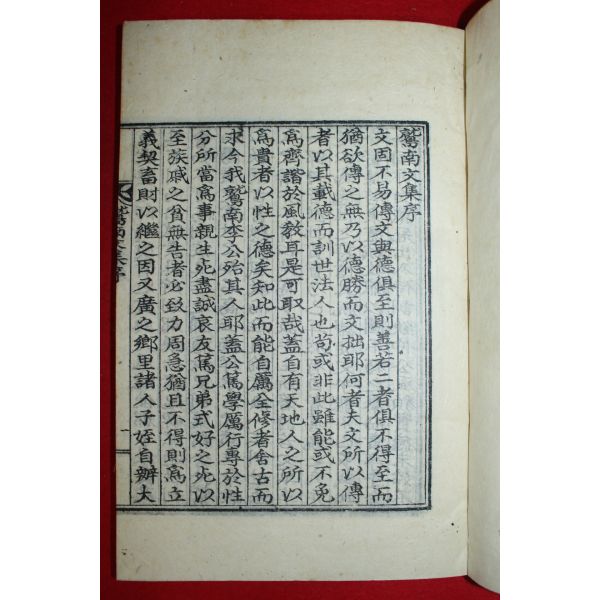 鷲南文集序
文固不易傳文與德俱至則善若二者俱不得至而
猶欲傳之無乃以德勝而文拙耶何者夫文所以傳
者以其載德而訓世法人也苟或非此雖能或不免
爲齊諧於風敎耳是可取哉蓋自有天地人之所以
爲貴者以性之德矣知此而能自厲全修者舍古而
求今我鷲南李公殆其人耶蓋公篤學厲行專於性
分所當爲事親生死盡誠哀友篤兄弟式好之死以
至族戚之貧無告者必致力周急猶且不得則爲立
義契畜財以繼之因又廣之鄕里諸人子姪自辦大
鷲南文集序
一